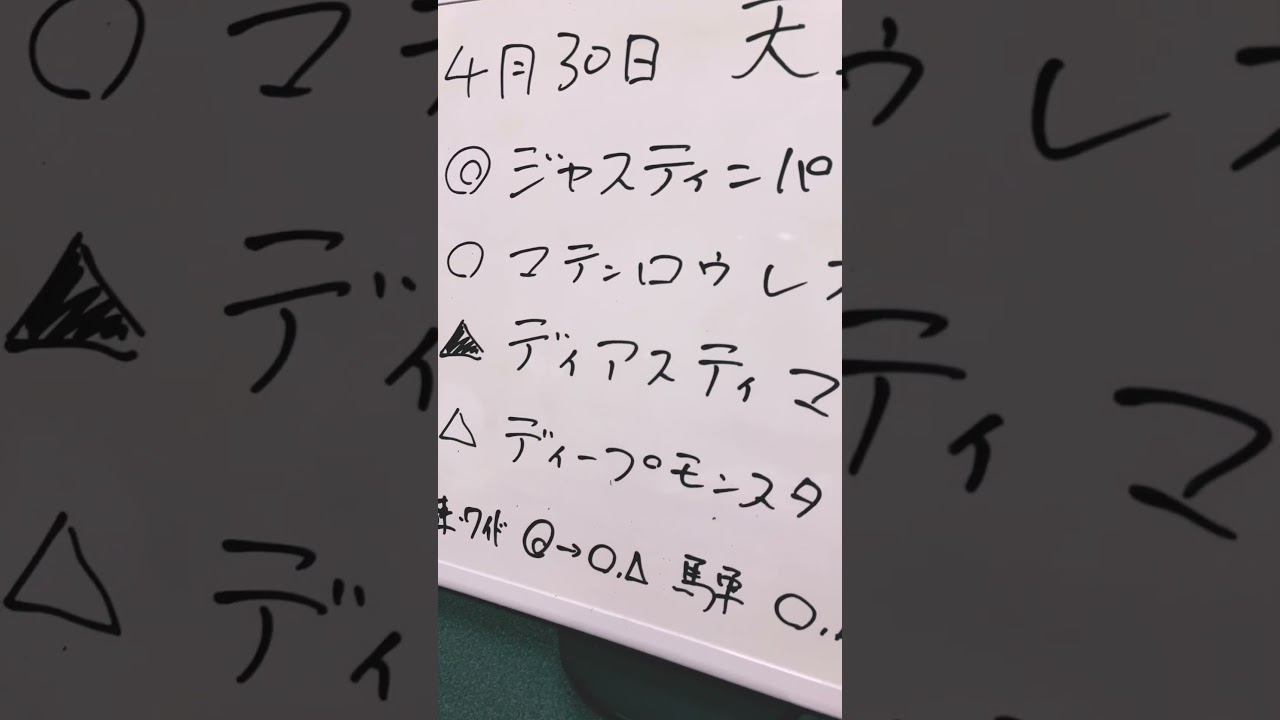 4月30日 天
◎ ジャスティンパ
○ マテンロウレ
▲ ディアスティマ
△ ディープモンスタ
ワイド ◎→○.△ 馬単 ○.